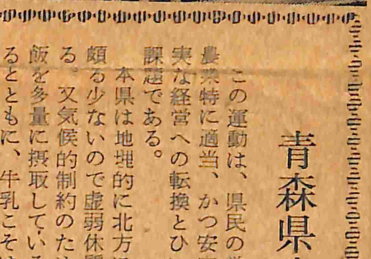 青森県
この運動は、県民の
農業特に適当、かつ安
実な経営への転換とひ
課題である。
本県は地理的に北方
頗る少ないので虚弱体質
る。又気候的制約のため
飯を多量に摂取している
るとともに、牛乳こそ